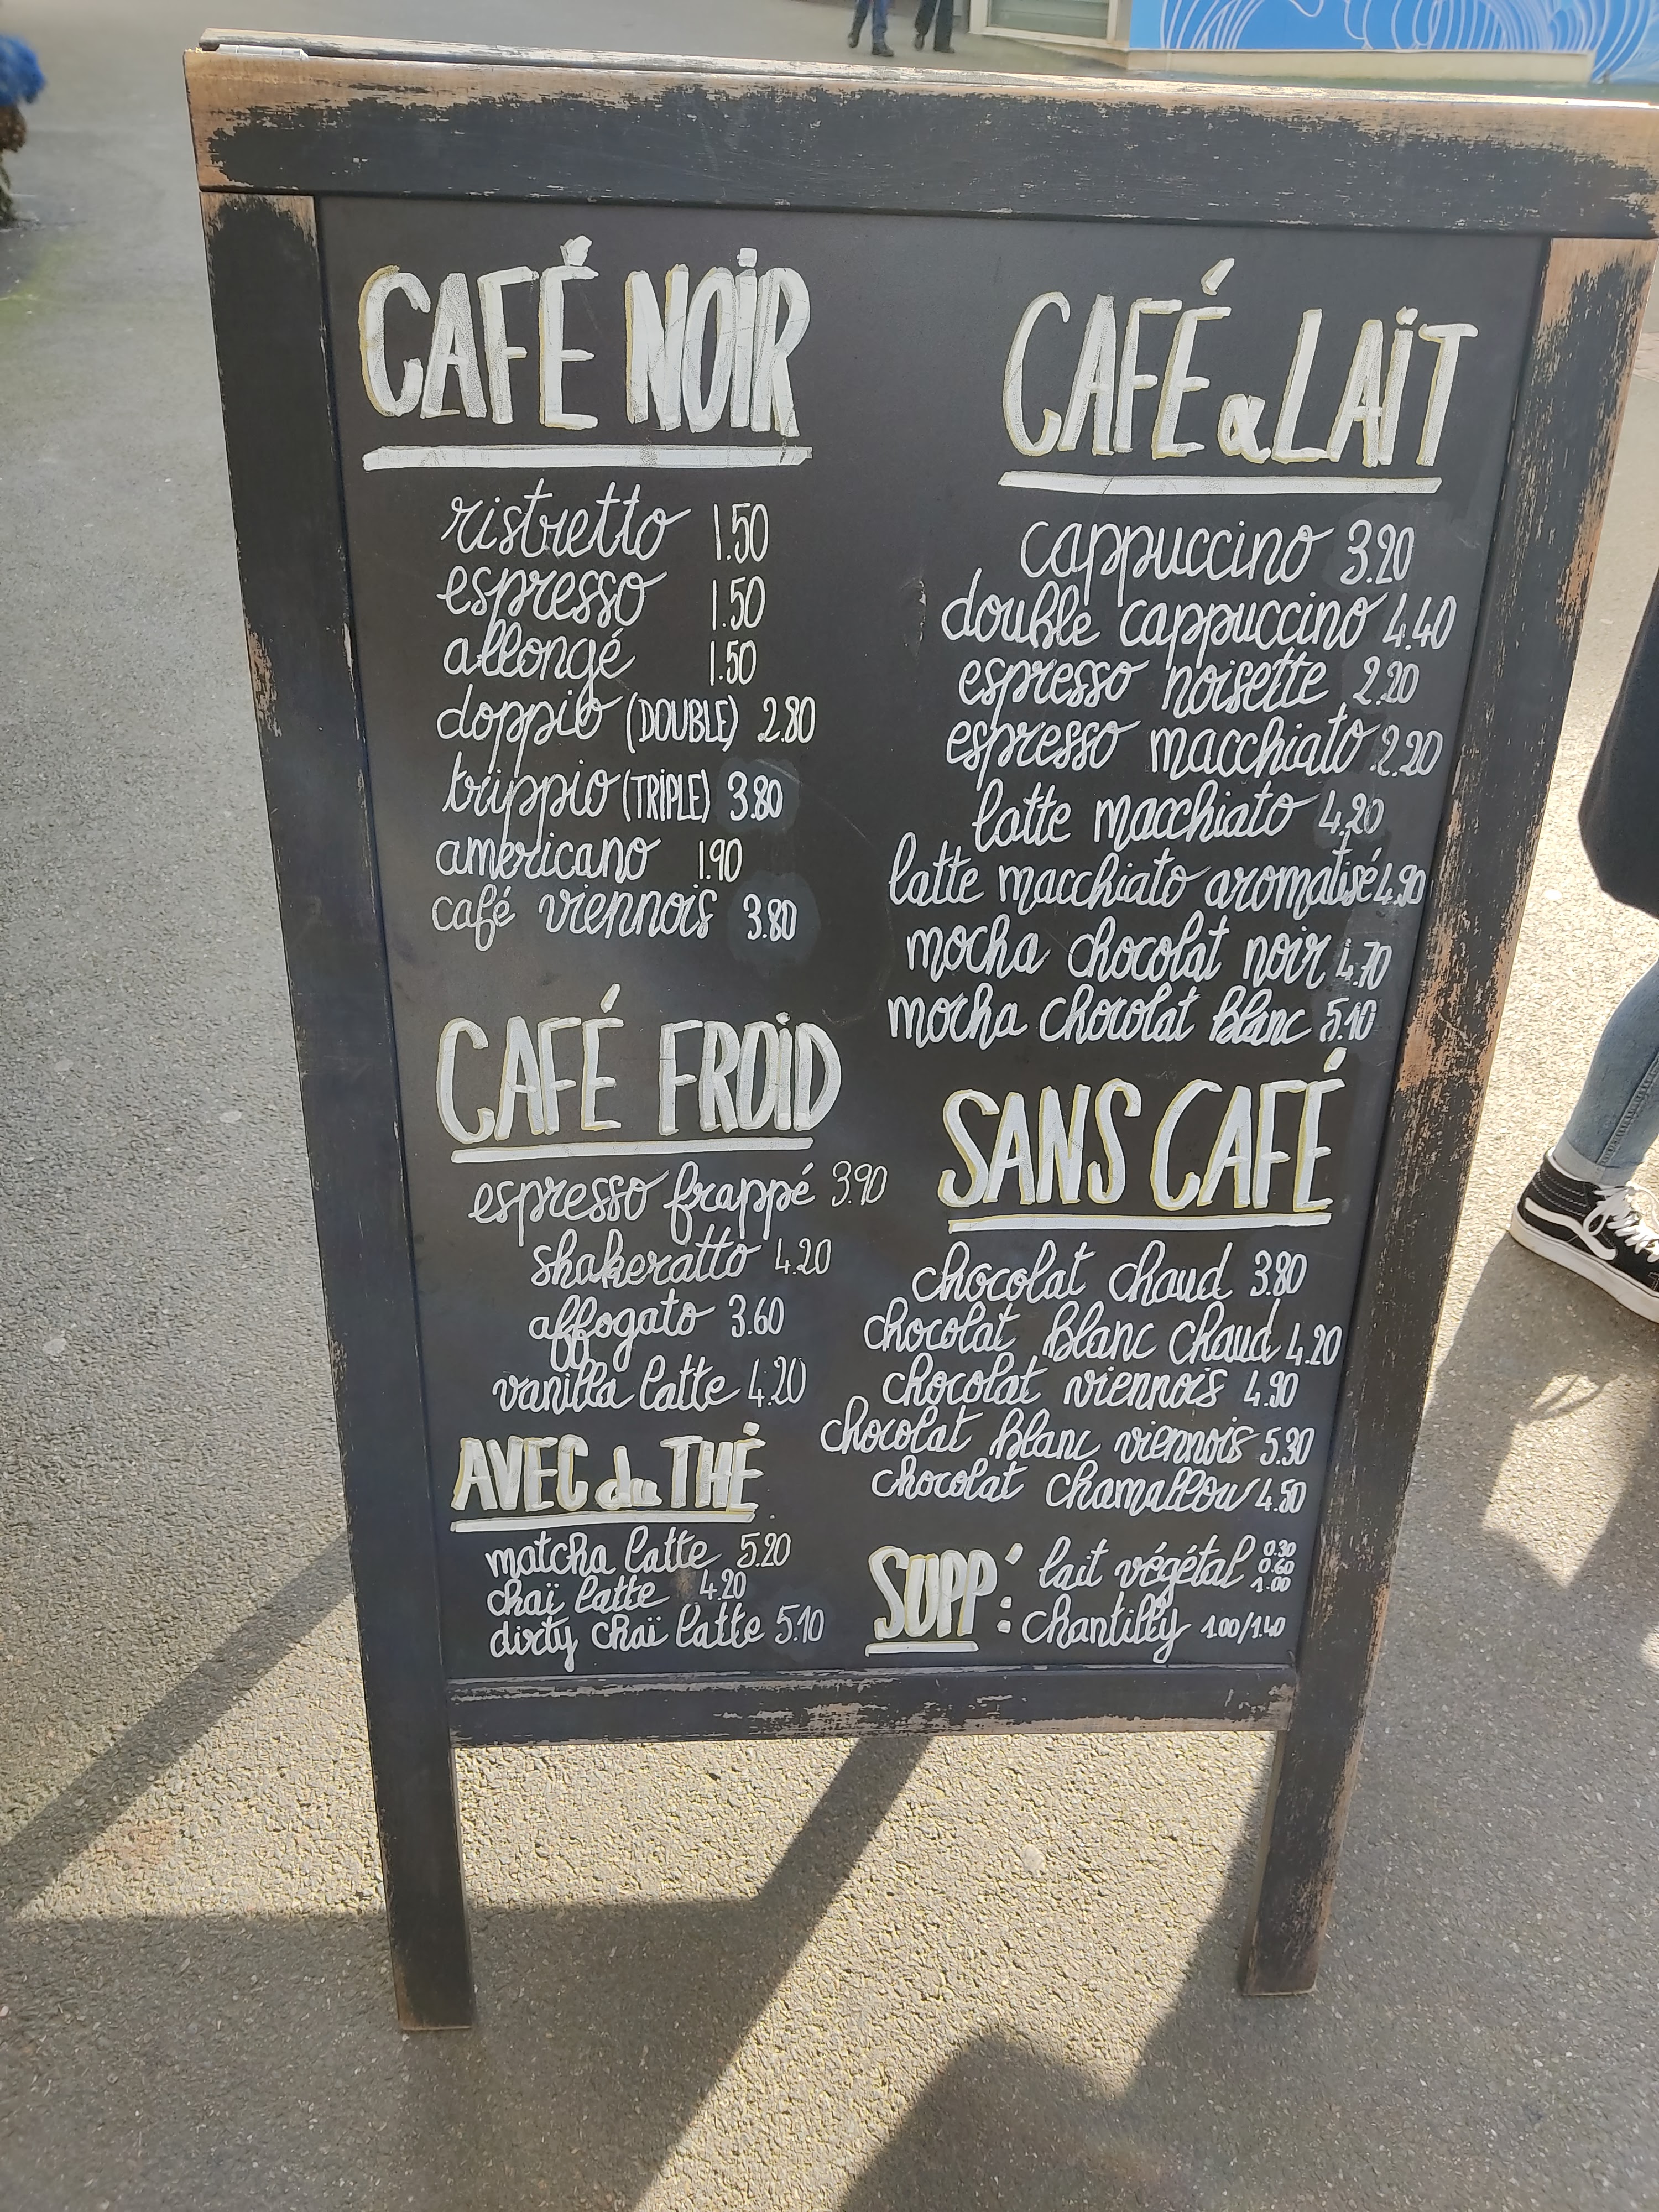 CAFÉ NOIR
ristretto 1.50
espresso 1.50
allongé 1.50
doppio (DOUBLE) 2.80
trippio (TRIPLE) 3.80
americano 1.90
café viennois 3.80
CAFÉ FROID
espresso frappé 3.90
shakeratto 4.20
affogato 3.60
vanilla latte 4.20
AVEC du THÉ
matcha latte 5.20
chaï latte 4.20
dirty chaï latte 5.10
CAFÉ a LAIT
cappuccino 3.20
double cappuccino 4.40
espresso noisette 2.20
espresso macchiato 2.20
latte macchiato 4.20
latte macchiato aromatisé 4.90
mocha chocolat noir 4.70
mocha chocolat blanc 5.10
SANS CAFÉ
chocolat chaud 3.80
chocolat blanc chaud 4.20
chocolat viennois 4.90
chocolat blanc viennois 5.30
chocolat chamallow 4.50
SUPP' : lait végétal 0.30 0.60 1.00
chantilly 1.00/1.40